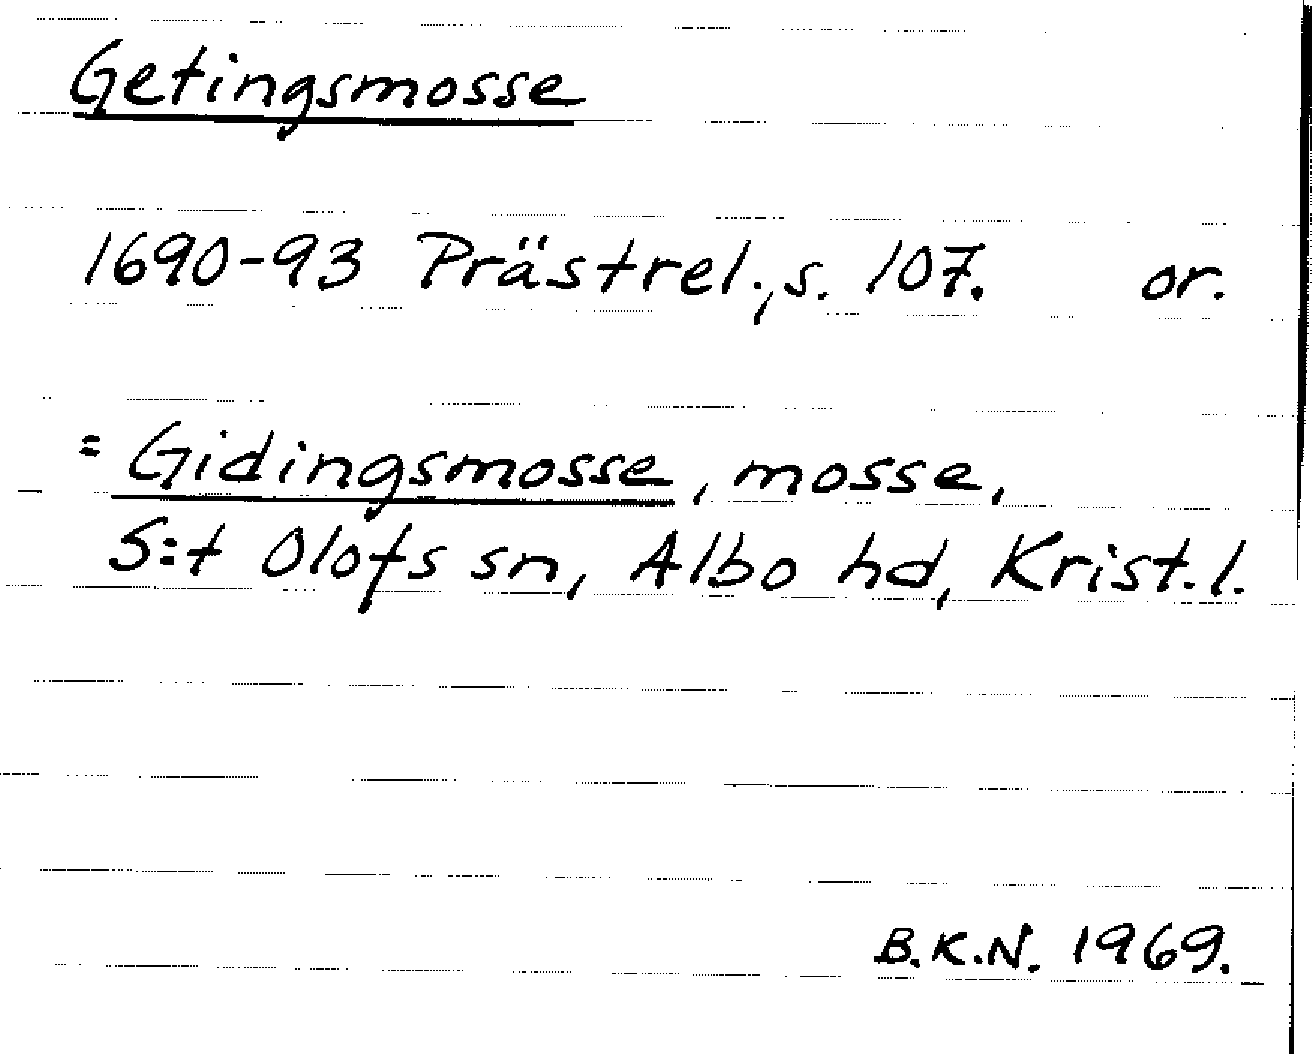 Getingsmosse
1690-93 Prästrel., s. 107. or.
= Gidingsmosse, mosse,
S:t Olofs sn, Albo hd, Krist. l.
B.K.N. 1969.